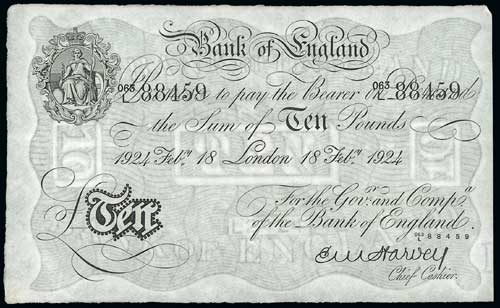 Bank of England
063/L 88459 063/L 88459
Promise to pay the Bearer on Demand
the Sum of Ten Pounds
1924 Feb.ry 18 London 18 Feb.ry 1924
For the Gov.r and Comp.a
of the Bank of England.
063/L 88459
£Ten
E M Harvey
Chief Cashier.